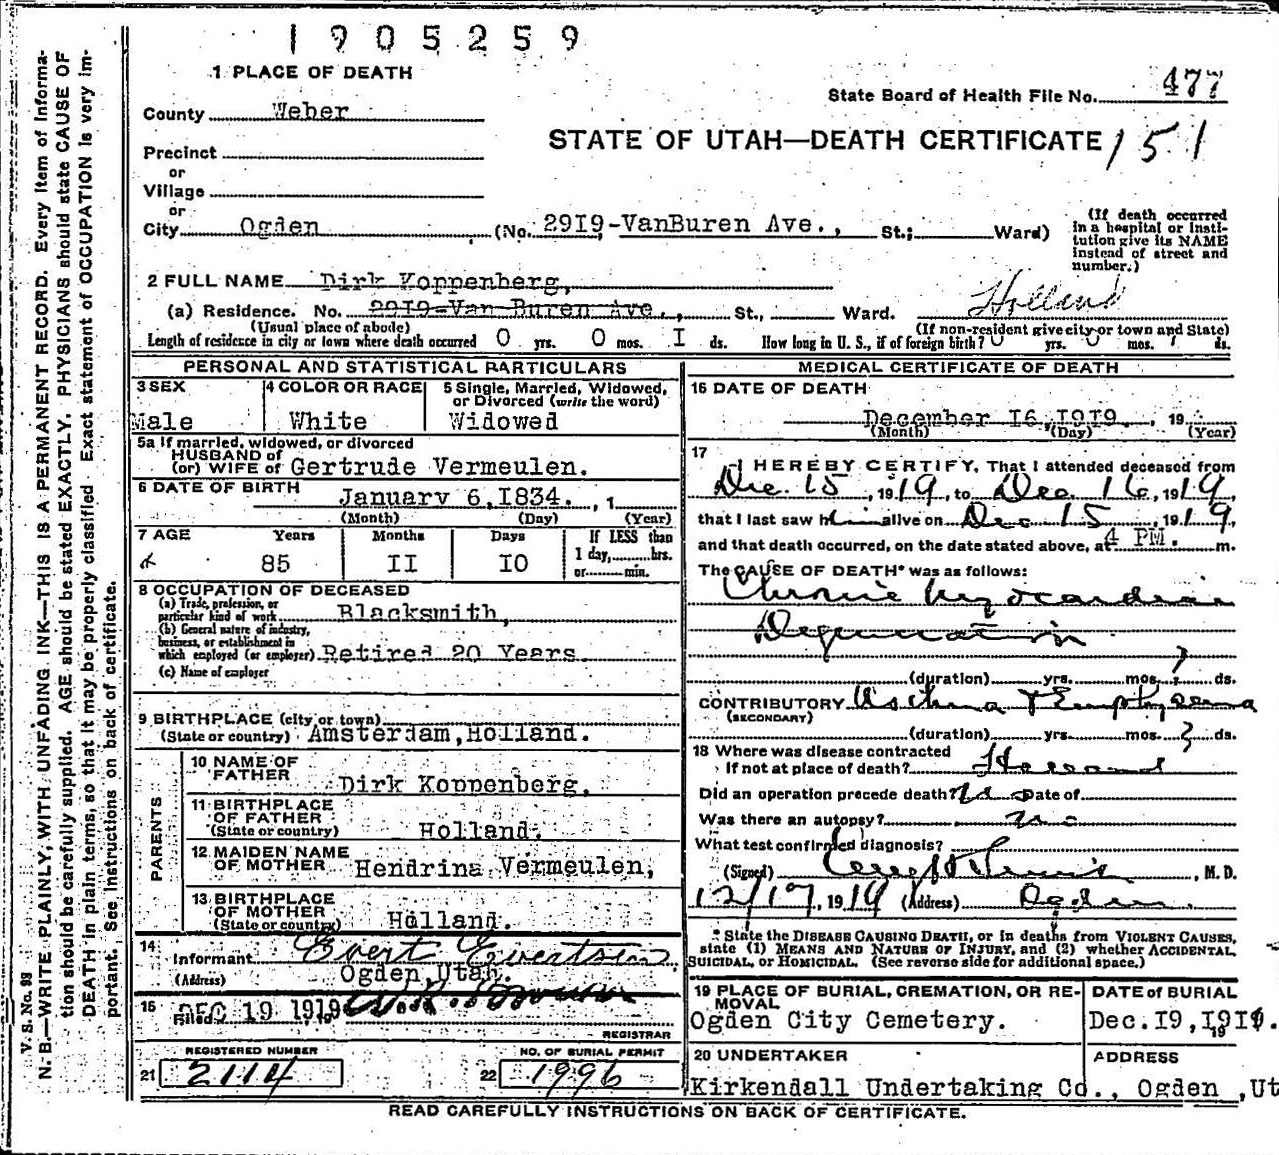 1905259
1 PLACE OF DEATH
State Board of Health File No. 477
County Weber
STATE OF UTAH—DEATH CERTIFICATE 151
Precinct
or
Village
or
City Ogden (No. 2919-VanBuren Ave., St.; Ward)
(If death occurred in a hospital or insti-
tution give its NAME
instead of street and
number.)
2 FULL NAME Dirk Koppenberg,
(a) Residence. No. 2919-Van Buren Ave., St., Ward. Holland
(Usual place of abode) (If non-resident give city or town and State)
Length of residence in city or town where death occurred 0 yrs. 0 mos. I ds. How long in U. S., if of foreign birth? 0 yrs. 0 mos. 1 ds.
PERSONAL AND STATISTICAL PARTICULARS
3 SEX
Male
4 COLOR OR RACE
White
5 Single, Married, Widowed,
or Divorced (write the word)
Widowed
5a If married, widowed, or divorced
HUSBAND of
(or) WIFE of Gertrude Vermeulen.
6 DATE OF BIRTH
January 6,I834. , 1
(Month) (Day) (Year)
7 AGE Years Months Days
85 II IO
If LESS than
1 day, hrs.
or min.
8 OCCUPATION OF DECEASED
(a) Trade, profession, or
particular kind of work Blacksmith,
(b) General nature of industry,
business, or establishment in
which employed (or employer) Retired 20 Years
(c) Name of employer
9 BIRTHPLACE (city or town)
(State or country) Amsterdam,Holland.
PARENTS
10 NAME OF
FATHER
Dirk Koppenberg,
11 BIRTHPLACE
OF FATHER
(State or country) Holland.
12 MAIDEN NAME
OF MOTHER Hendrina Vermeulen,
13 BIRTHPLACE
OF MOTHER
(State or country) Holland.
14
Informant Evert Evertsen
(Address) Ogden,Utah.
15 Filed DEC 19 1919
REGISTRAR
REGISTERED NUMBER
21 2114
NO. OF BURIAL PERMIT
22 1996
MEDICAL CERTIFICATE OF DEATH
16 DATE OF DEATH
December I6,I9I9. , 19
(Month) (Day) (Year)
17
I HEREBY CERTIFY, That I attended deceased from
Dec. 15, 1919, to Dec. 16, 1919,
that I last saw him alive on Dec 15, 1919,
and that death occurred, on the date stated above, at 4 PM. m.
The CAUSE OF DEATH* was as follows:
Chronic Myocardial
Degeneration
(duration) yrs. mos. ? ds.
CONTRIBUTORY Asthma & Emphysema
(SECONDARY)
(duration) yrs. mos. ? ds.
18 Where was disease contracted
If not at place of death? Holland
Did an operation precede death? No Date of
Was there an autopsy? no
What test confirmed diagnosis?
(Signed) , M. D.
12/17, 1919 (Address) Ogden.
* State the DISEASE CAUSING DEATH, or in deaths from VIOLENT CAUSES,
state (1) MEANS AND NATURE OF INJURY, and (2) whether ACCIDENTAL,
SUICIDAL, or HOMICIDAL. (See reverse side for additional space.)
19 PLACE OF BURIAL, CREMATION, OR RE-
MOVAL
Ogden City Cemetery.
DATE of BURIAL
Dec.I9,I919. 19
20 UNDERTAKER
Kirkendall Undertaking Co.,
ADDRESS
Ogden ,Ut
READ CAREFULLY INSTRUCTIONS ON BACK OF CERTIFICATE.
V. S. No. 98
N. B.—WRITE PLAINLY, WITH UNFADING INK—THIS IS A PERMANENT RECORD. Every item of informa-
tion should be carefully supplied. AGE should be stated EXACTLY. PHYSICIANS should state CAUSE OF
DEATH in plain terms, so that it may be properly classified. Exact statement of OCCUPATION is very im-
portant. See instructions on back of certificate.